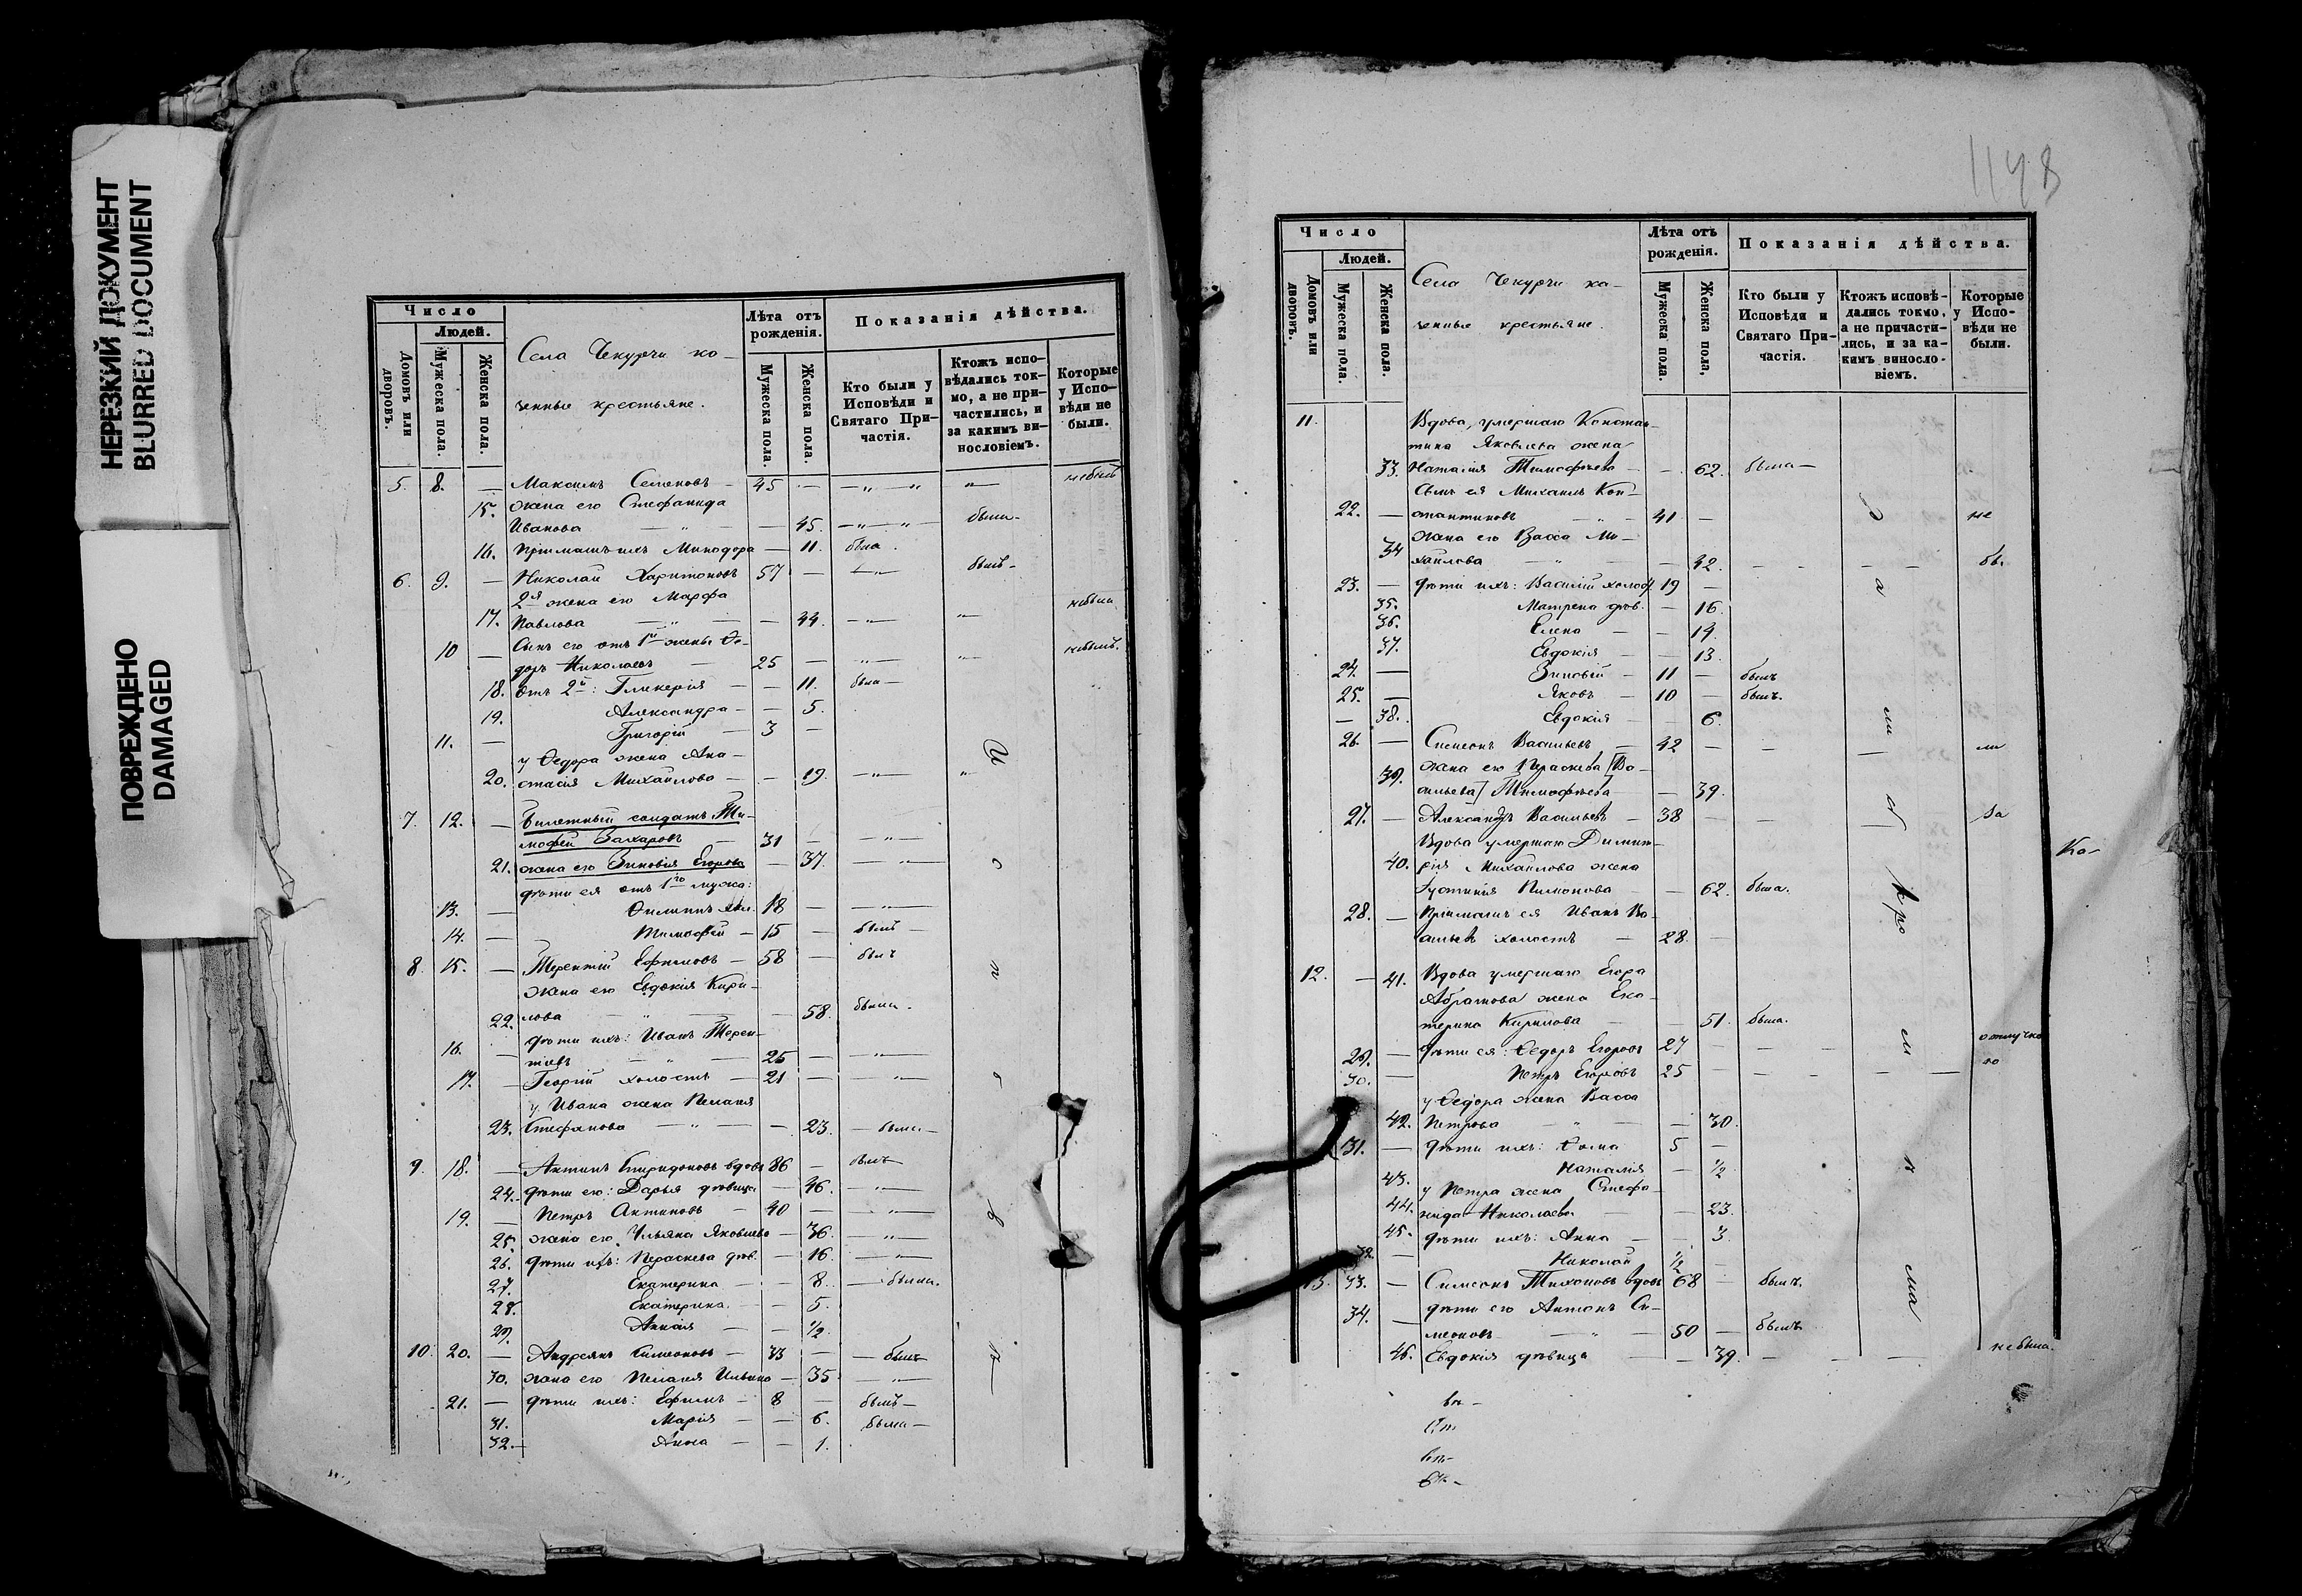 НЕРЕЗКИЙ ДОКУМЕНТ
BLURRED DOCUMENT
ПОВРЕЖДЕНО
DAMAGED
Число
Людей.
Домовъ или дворовъ.
Мужеска пола.
Женска пола.
Села Чекурчи ка-
зенные крестьяне.
Лѣта отъ рожденія.
Мужеска пола.
Женска пола.
Показанія дѣйства.
Кто были у Исповѣди и Святаго При-частія.
Ктожъ испо-вѣдались ток-мо, а не при-частились, и за какимъ ви-нословіемъ.
Которые у Испо-вѣди не были.
5. 8. — Максимъ Семеновъ — 45 — небылъ
15. жена его Стефанида
Иванова — 45 — была
16. Приемышъ ихъ Минодора — 11. была
6. 9. — Николай Харитоновъ 57 — былъ
2я жена его Марфа
17. Павлова — 44. небыла
10 — Сынъ его отъ 1й жены Ѳе-
доръ Николаевъ 25 — небылъ.
18. Отъ 2й: Гликерія — 11. была —
19. Александра — 5.
11. — Григорій — 3 —
у Ѳедора жена Ана-
20. стасія Михайлова — 19.
7. 12. — Билетный солдатъ Ти-
мофей Захаровъ 31 —
21. жена его Зиновія Егорова — 37.
дѣти ея отъ 1го мужа:
13. — Филиппъ 18 —
14. — Тимофей — 15 — былъ —
8. 15. — Терентій Ефимовъ — 58 — былъ
жена его Евдокія Кири-
22. лова — 58. была.
16. — дѣти ихъ: Иванъ Терен-
тьевъ — 25 —
17. — Георгій холостъ — 21 —
у Ивана жена Пелагея
23. Стефанова — 23. — была —
9. 18. — Антипъ Спиридоновъ вдовъ 86 — былъ
24. дѣти его: Дарья дѣвица — 46.
19. — Петръ Антиповъ — 40 —
25. жена его Ульяна Яковлева — 36.
26. дѣти ихъ: Параскева дѣв. — 16
27. Екатерина — 8. — была.
28. Екатерина. — 5.
29. Анна — ½
10. 20. — Андреянъ Симеоновъ — 33 — былъ
30. жена его Пелагея Ильина — 35
21. — дѣти ихъ: Ефимъ — 8 — былъ —
31. Марія — 6. была —
32. — Анна — 1.
1148
Число
Людей.
Домовъ или дворовъ.
Мужеска пола.
Женска пола.
Села Чекурчи ка-
зенные крестьяне.
Лѣта отъ рожденія.
Мужеска пола.
Женска пола,
Показанія дѣйства.
Кто были у Исповѣди и Святаго При-частія.
Ктожъ исповѣ-дались токмо, а не причасти-лись, и за ка-кимъ винослo-віемъ.
Которые у Испо-вѣди не были.
11. Вдова, умершаго Констан-
тина Яковлева жена
33. Наталія Тимофѣева — 62. была —
Сынъ ея Михаилъ Кон-
22. — стантиновъ — 41 — не
жена его Васса Ми-
34 хайлова — 42. — бы.
23. — дѣти ихъ: Василій холос. 19 —
35. Матрена дѣв. — 16.
36. Елена — 19.
37. Евдокія — 13.
24. — Зиновій — 11 — былъ
25. — Яковъ — 10 — былъ.
— 38. Евдокія — 6.
26. — Симеонъ Васильевъ — 42 — ли
39. жена его Параскева [Ва-
сильева] Тимофѣева — 39.
27. — Александръ Васильевъ — 38 — За
Вдова умершаго Димит-
40. рія Михайлова жена
Іустинія Пимонова — 62. была.
28. — Пріемышъ ея Иванъ Ва-
сильевъ холостъ — 28. —
12. — 41. Вдова умершаго Егора
Абрамова жена Ека-
терина Кирилова — 51. была.
29. — дѣти ея: Ѳедоръ Егоровъ 27 — отлучко
30. — Петръ Егоровъ 25 — ю
у Ѳедора жена Васса
42. Петрова — 30.
31. — дѣти ихъ: Ѳома 5 —
43. Наталія — ½
у Петра жена Стефа-
44. нида Николаева — 23.
45. дѣти ихъ: Анна — 3.
32. — Николай ½ —
13. 33. — Симеонъ Тихоновъ вдовъ 68 — былъ.
34. — дѣти его Антонъ Си-
меоновъ — 50 — былъ
46. Евдокія дѣвица — 39. — небыла.
Ка-